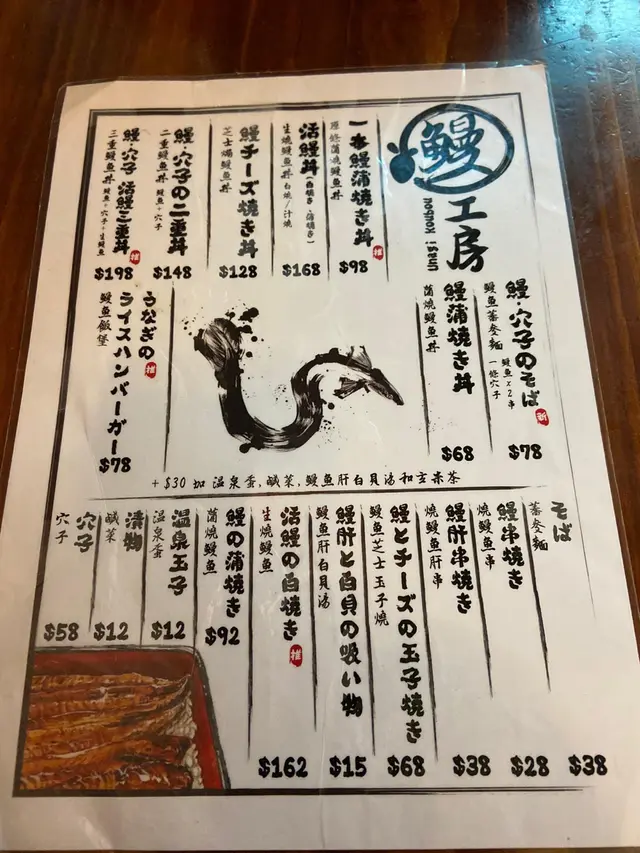 鰻
工房
Unagi Kouboh
一本鰻蒲焼き丼
原條蒲燒鰻魚丼
$98
推
活鰻丼(白焼き・蒲焼き)
生燒鰻魚丼 白燒/汁燒
$168
鰻チーズ焼き丼
芝士焗鰻魚丼
$128
鰻・穴子の二重丼
二重鰻魚丼 鰻魚+穴子
$148
鰻・穴子 活鰻三重丼
三重鰻魚丼 鰻魚+穴子+生鰻魚
$198
推
鰻・穴子のそば
鰻魚蕎麥麵 鰻魚x2串 一條穴子
$78
新
鰻蒲焼き丼
蒲燒鰻魚丼
$68
うなぎの
ライスハンバーガー
鰻魚飯堡
$78
推
+$30 加 溫泉蛋,鹹菜,鰻魚肝白貝湯和玄米茶
そば
蕎麥麵
$38
鰻串焼き
燒鰻魚串
$28
鰻肝串焼き
燒鰻魚肝串
$38
鰻とチーズの玉子焼き
鰻魚芝士玉子燒
$68
鰻肝と白貝の吸い物
鰻魚肝白貝湯
$15
活鰻の白焼き
生燒鰻魚
$162
推
鰻の蒲焼き
蒲燒鰻魚
$92
温泉玉子
溫泉蛋
$12
漬物
鹹菜
$12
穴子
穴子
$58